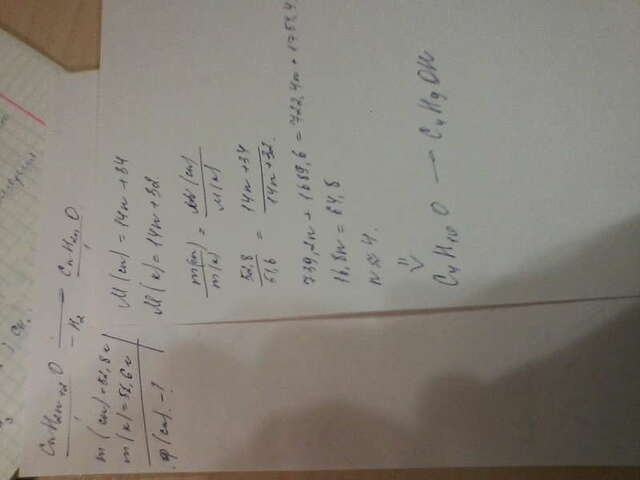 CnH2n+2O —— CnH2nO
-H2
m(сп)=52,8г
m(к)=51,6г
ф(сп).-?
M(сп)=14n+34
M(к)=14n+32
m(сп)/m(к) = M(сп)/M(к)
52,8/51,6 = 14n+34/14n+32.
739,2n+1689,6=722,4n+1754,4.
16,8n=64,8
n≈4.
⇓
C4H10O — C4H9OH